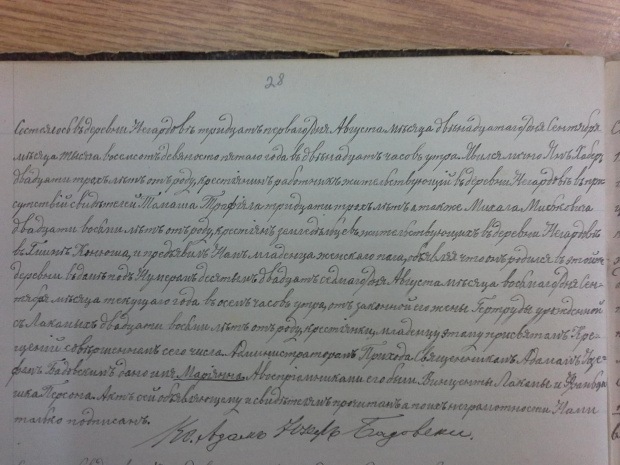 28
Состоялось въ деревни Негардовѣ тридцать перваго дня Августа мѣсяца двѣнадцатаго дня Сентября
мѣсяца тысяча восемсотъ девяносто пятаго года въ двѣнадцать часовъ утра. Явился лично Янъ Хабер,
двадцати трехъ лѣтъ отъ роду, крестьянинъ работникъ жительствующій въ деревни Негардовѣ въ при-
сутствіи свидѣтелей Томаша Трофила тридцати трехъ лѣтъ а также Михала Митковича
двадцати восьми лѣтъ отъ роду, крестьянъ земледѣльцевъ жительствующихъ въ деревни Негардовѣ
въ Гминѣ Конюша, и предъявилъ Намъ младенца женскаго пола, объявляя что онъ родился въ этой же
деревни въ домѣ подъ Нумеромъ десятымъ двадцать седмаго дня Августа мѣсяца восьмаго дня Сен-
тября мѣсяца текущаго года въ осемъ часовъ утра, отъ законной его жены Гертруды урожденной
съ двадцати восьми лѣтъ отъ роду, крестьянки, младенцу этому при святомъ Кре-
щеніи совершенномъ сего числа Администраторомъ Прихода Священникомъ Адамомъ
Бадовскимъ дано имя Маріянна, А воспріемниками его были Винценты и
Персона. Актъ сей объявляющему и свидѣтелямъ прочитанъ а по ихъ неграмотности Нами
только подписанъ.
Кс. Адамъ Бадовски.